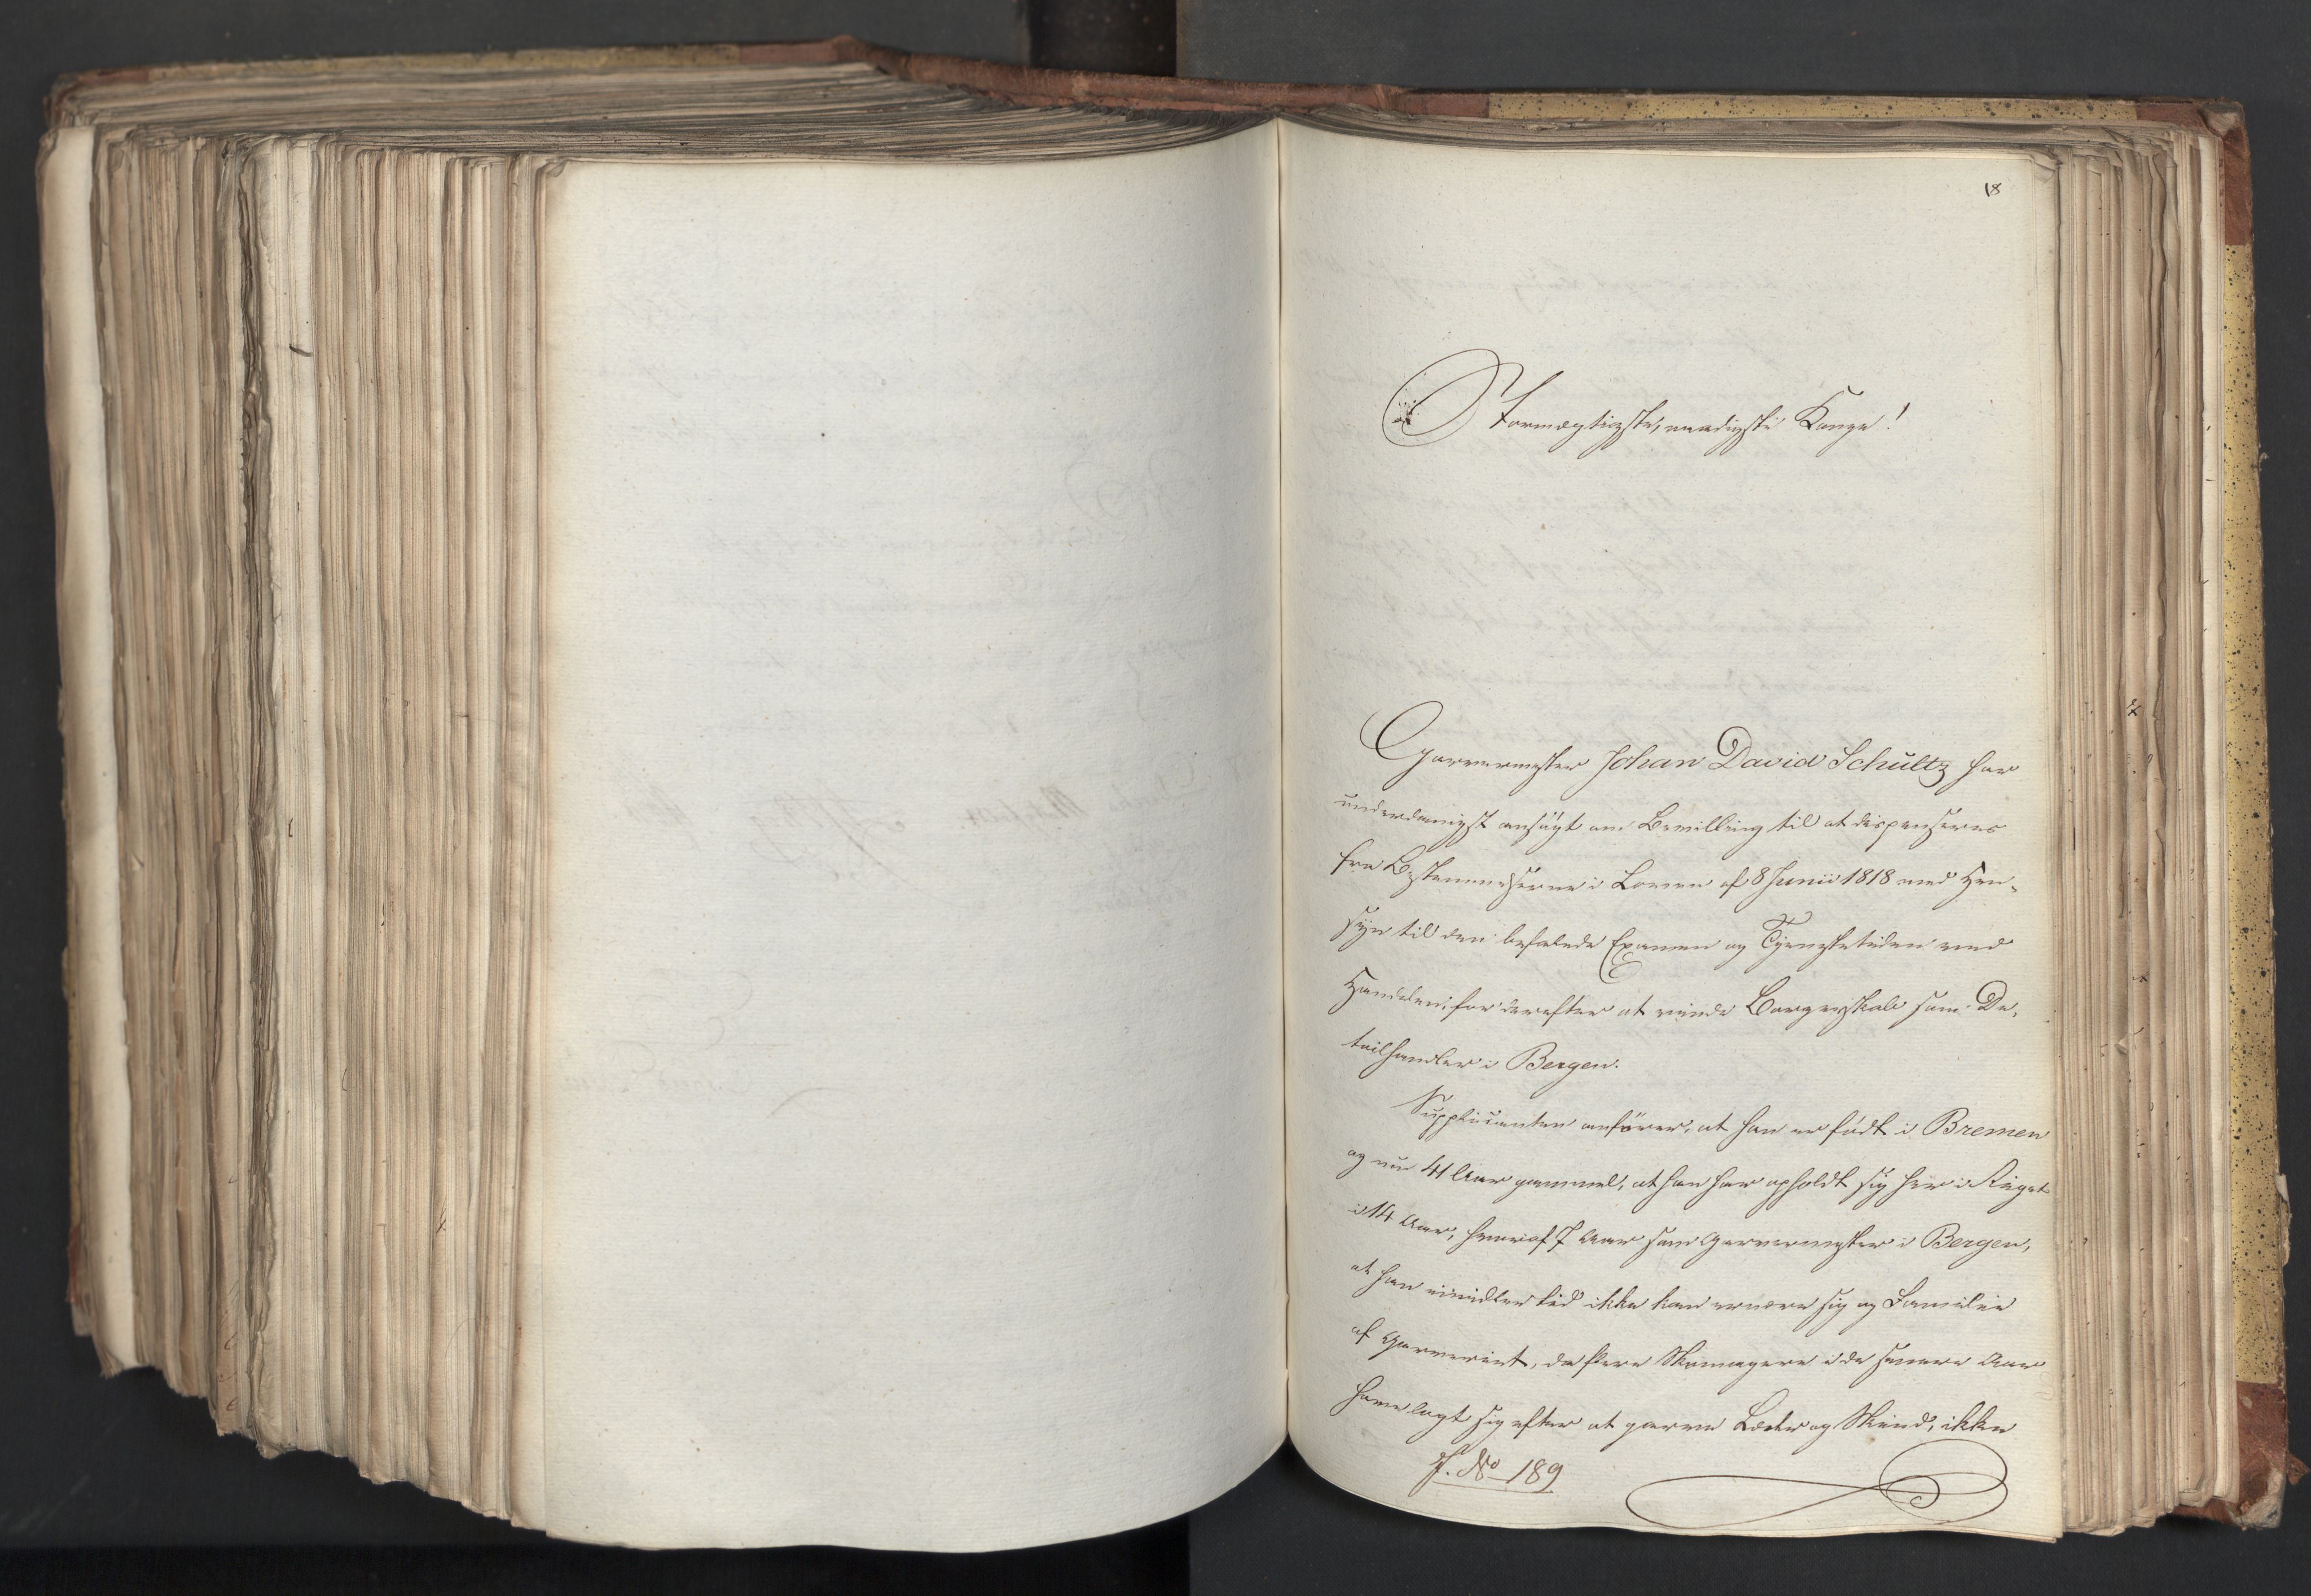 18
Stormægtigste, naadigste Konge!
Garvermester Johan David Schültz har
underdanigst ansögt om Bevilling til at dispenseres
fra Bestemmelserne i Loven af 8 Junii 1818 med Hen-
syn til den befalede Examen og Tjenestetiden ved
Handelen, for derefter at vinde Borgerskab som De-
tailhandler i Bergen.
Supplicanten anförer, at han er født i Bremen
og nu 41 Aar gammel, at han har opholdt sig her i Riget
i 14 Aar, hvoraf 7 Aar som Garvermester i Bergen,
at han imidlertid ikke kan ernære sig og Familie
af Garveriet, da flere Skomagere i de senere Aar
have lagt sig efter at garve Læder og Skind, ikke
J. No 189